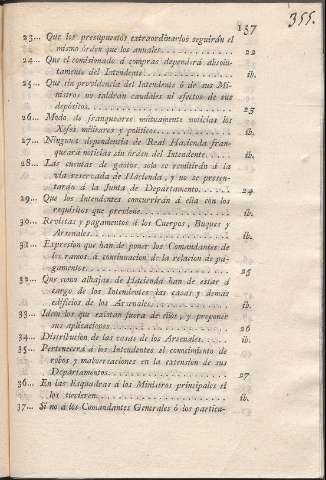 355.
157
23... Que los presupuestos extraordinarios seguirán el
mismo órden que los annales.......... 22
24... Que el comisionado á compras dependerá absolu-
tamente del Intendente............ ib.
25... Que sin providencia del Intendente ó de sus Mi-
nistros no saldrán caudales ni efectos de sus
depósitos.................. 23
26... Modo de franquearse mutuamente noticias los
Xefes militares y políticos......... ib.
27... Ninguna dependencia de Real Hacienda fran-
queará noticias sin órden del Intendente.... ib.
28... Las cuentas de gastos solo se remitirán á la
via reservada de Hacienda, y no se presen-
tarán á la Junta de Departamento...... 24
29... Que los Intendentes concurrirán á ella con los
requisitos que previene............ ib.
30... Revistas y pagamentos á los Cuerpos, Buques y
Arsenales.................. ib.
31... Expresion que han de poner los Comandantes de
los ramos á continuacion de la relacion de pa-
gamentos.................. 25
32... Que como alhajas de Hacienda han de estar á
cargo de los Intendentes las casas y demás
edificios de los Arsenales........... ib.
33... Idem los que existan fuera de ellos, y proponer
sus aplicaciones............... 26
34... Distribucion de las casas de los Arsenales.... ib.
35... Pertenecerá á los Intendentes el conocimiento de
robos y malversaciones en la extension de sus
Departamentos............... 27
36... En las Esquadras á los Ministros principales si
los tuvieren................. ib.
37... Si no á los Comandantes Generales ó los particu-